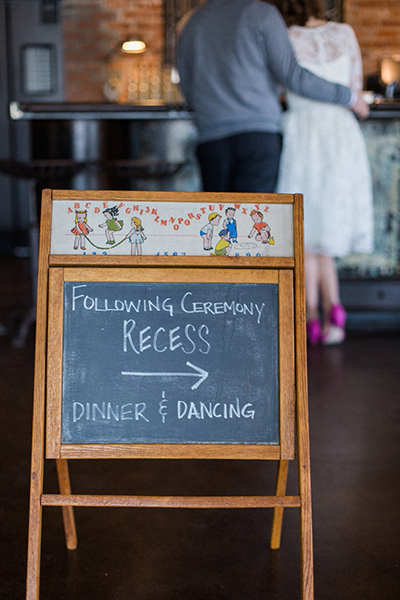 ABCDEFGHIJKLMNOPQRSTUVWXYZ
FOLLOWING CEREMONY
RECESS
DINNER & DANCING